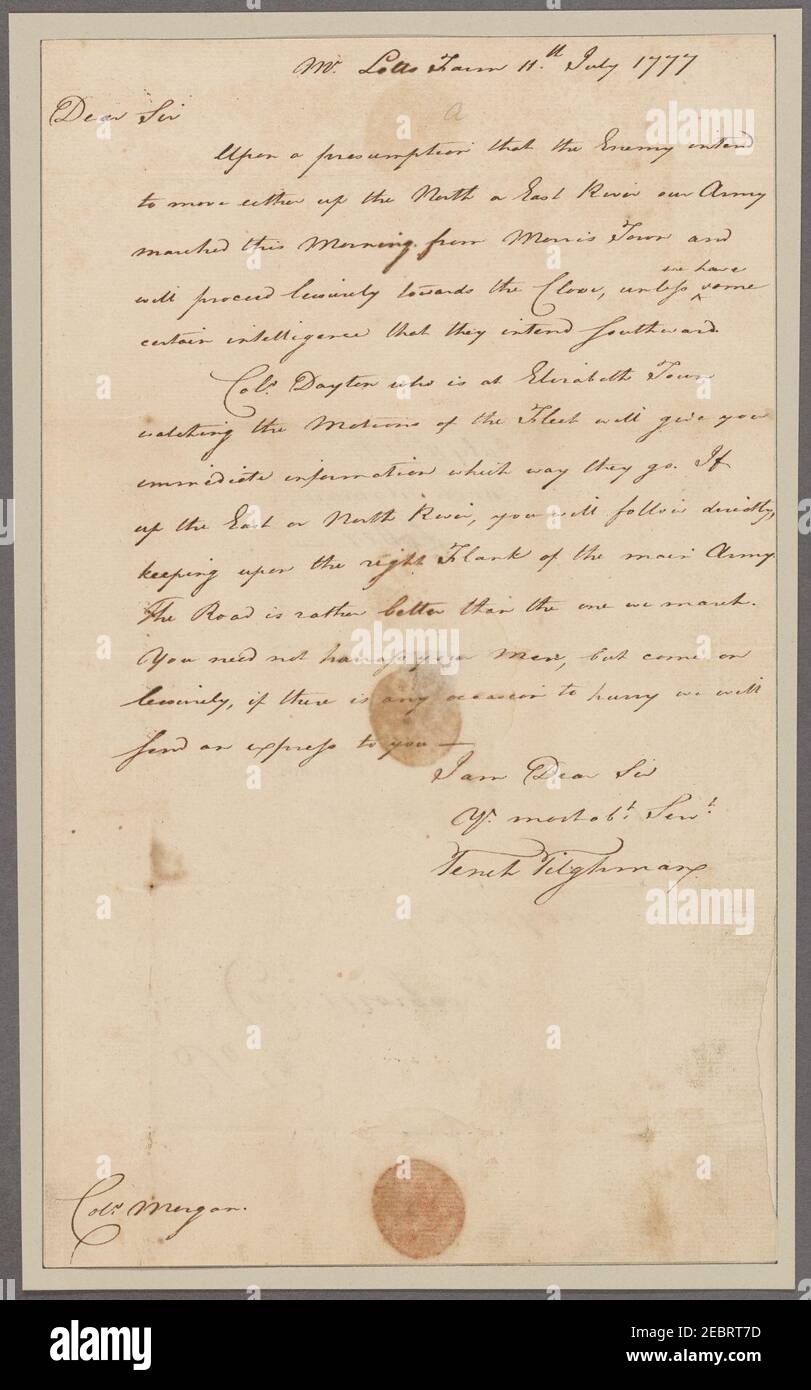 Mr. Lotts Farm 11.th July 1777
Dear Sir
a
Upon a presumption that the Enemy intend
to move either up the North or East River our Army
marched this Morning from Morris Town and
will proceed leisurely towards the Clove, unless ^ we have some
certain intelligence that they intend Southward.
Colo. Dayton who is at Elizabeth Town
watching the Motions of the Fleet will give you
immediate information which way they go. If
up the East or North River, you will follow directly,
keeping upon the right Flank of the main Army
The Road is rather better than the one we march.
You need not harrass your Men, but come on
leisurely, if there is any occasion to hurry we will
send an express to you —
I am Dear Sir
Yr. most obt. Servt.
Tench Tilghman
Colo. Morgan.
alamy
alamy
Image ID: 2EBRT7D
www.alamy.com